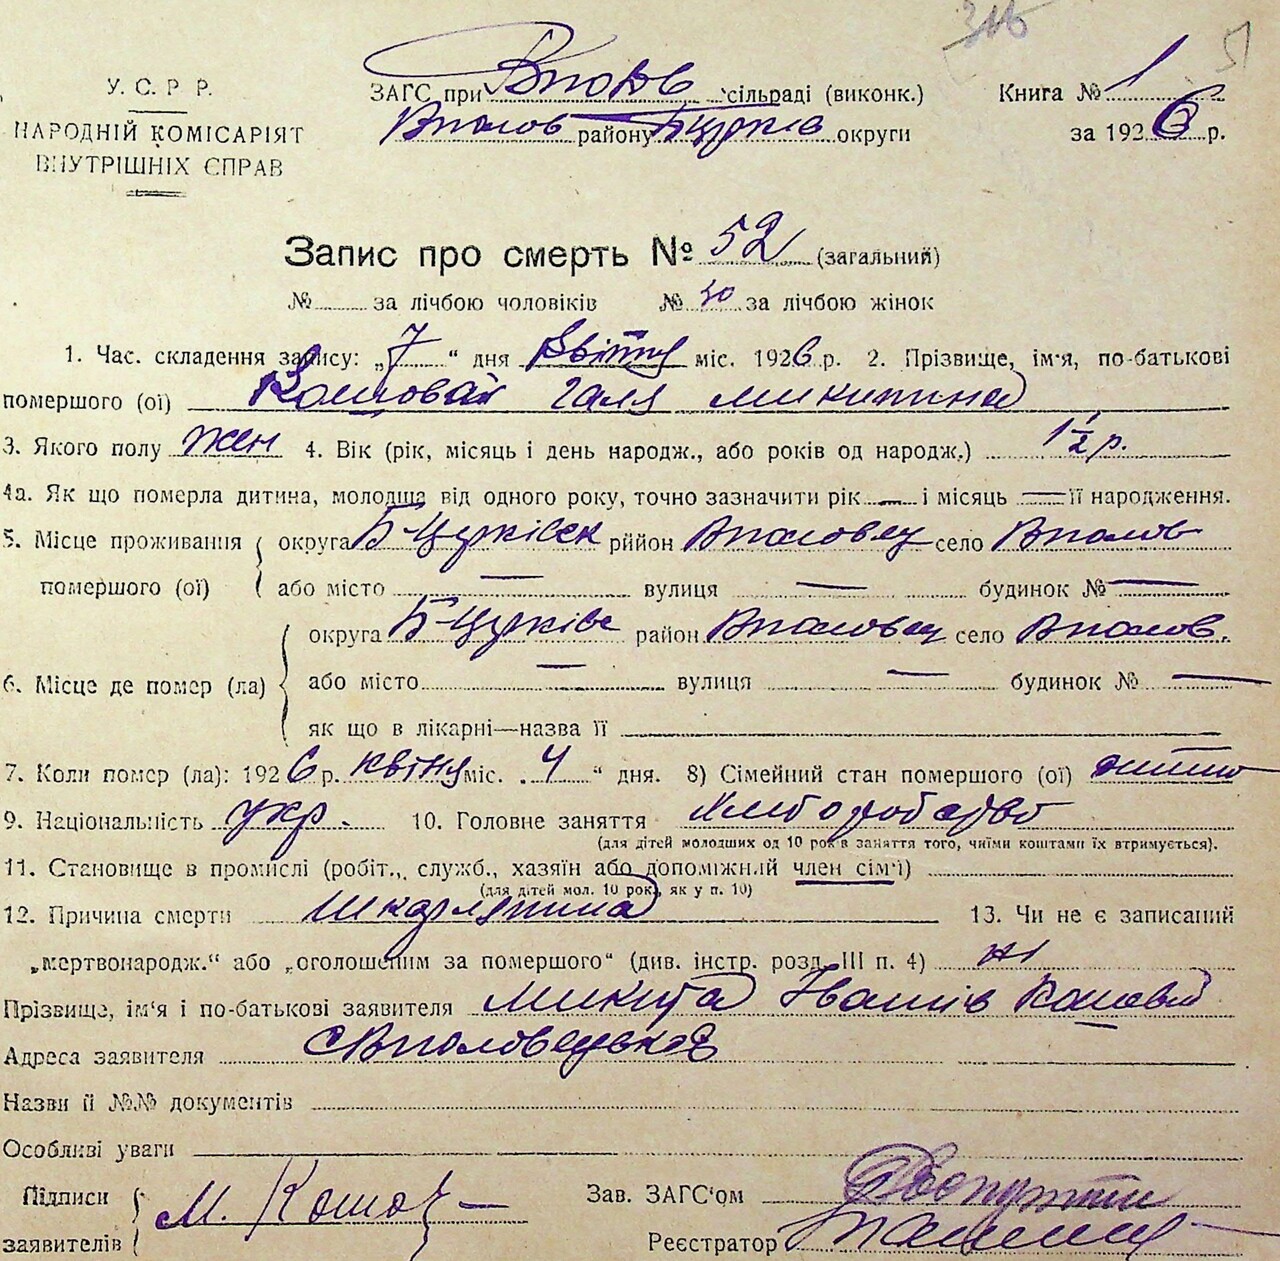 У. С. Р Р.
НАРОДНІЙ КОМІСАРІЯТ
ВНУТРІШНІХ СПРАВ
ЗАГС при Вполов сільраді (виконк.)
Вполов району Б Церків округи
Книга № 1
за 1926 р.
Запис про смерть № 52 (загальний)
№ за лічбою чоловіків № 30 за лічбою жінок
1. Час. складення запису: „7“ дня Квітня міс. 1926 р. 2. Прізвище, ім'я, по-батькові
помершого (ої) Кошовая Галя Микитина
3. Якого полу жен 4. Вік (рік, місяць і день народж., або років од народж.) 1 1/2 р.
4а. Як що померла дитина, молодша від одного року, точно зазначити рік — і місяць — її народження.
5. Місце проживання помершого (ої) округа Б-Церківск рййон Вполовец село Вполов
або місто — вулиця — будинок № —
6. Місце де помер (ла) округа Б-Церківс район Вполовец село Вполов.
або місто — вулиця — будинок № —
як що в лікарні—назва її
7. Коли помер (ла): 1926 р. квітня міс. „4“ дня. 8) Сімейний стан помершого (ої)
9. Національність укр. 10. Головне заняття Хліборобство
(для дітей молодших од 10 рок в заняття того, чиїми коштами їх втримується).
11. Становище в промислі (робіт., служб., хазяїн або допоміжний член сім'ї)
(для дітей мол. 10 рок, як у п. 10)
12. Причина смерти Шкарлятина 13. Чи не є записаний
„мертвонародж.“ або „оголошеним за помершого“ (див. інстр. розд. III п. 4) ні
Прізвище, ім'я і по-батькові заявителя Микита Іванів Кошевий
Адреса заявителя С Вполовецьков
Назви її №№ документів
Особливі уваги
Підписи заявителів М. Кошов
Зав. ЗАГС'ом
Реєстратор